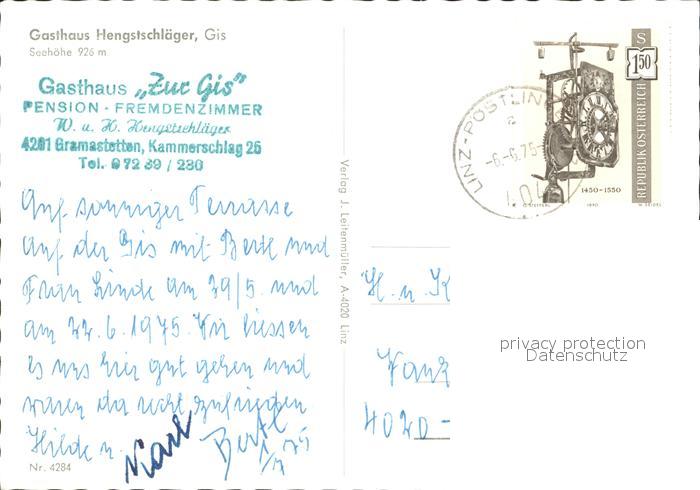 Gasthaus Hengstschläger, Gis
Seehöhe 926 m
Gasthaus „Zur Gis"
PENSION - FREMDENZIMMER
W. u. H. Hengstschläger
4201 Gramastetten, Kammerschlag 26
Tel. 0 72 39 / 230
Auf sonniger Terrasse
auf der Gis mit Bertl und
Frau Linde am 29/5. und
am 22.6.1975. Wir liessen
es uns hier gut gehen und
waren da recht zufrieden
Hilde u. Karl
Bertl
Nr. 4284
Verlag J. Leitenmüller, A-4020 Linz
LINZ-PÖSTLING
-6.-6.75
4040
S 1.50
REPUBLIK ÖSTERREICH
1450-1550
1970
H. u. K
4020-
privacy protection
Datenschutz